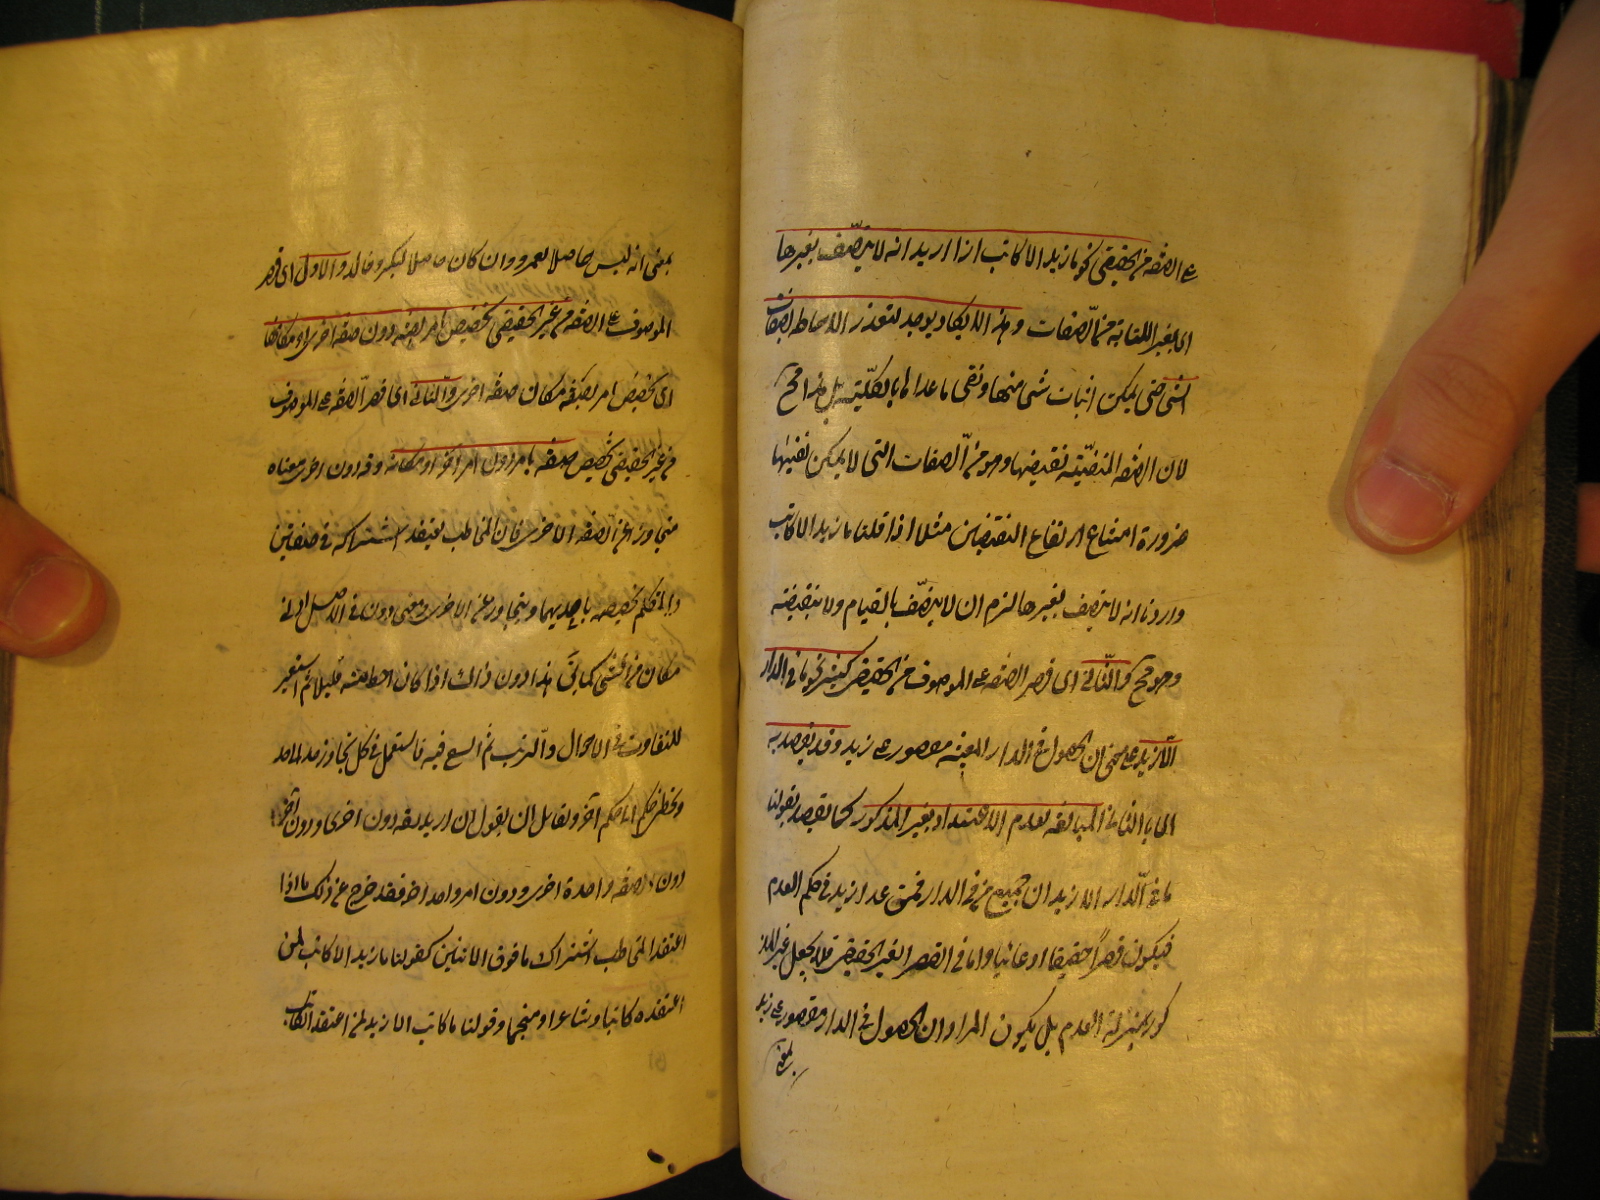 على الصفة من الحقيقى نحو ما زيد الا كاتب اذا اريد انه لا يتصّف بغيرها
اى بغير الكتابة من الصفات وهذا لا يكاد يوجد لتعذر الاحاطة بصفات
الشئ حتى يمكن اثبات شئ منها ونفى ما عداها بالكلّية بل هذا مح
لان الصفة المنفيّة نقيضها وهو من الصفات التى لا يمكن نفيها
ضرورة امتناع ارتفاع النقيضين مثلا اذا قلنا ما زيد الا كاتب
واردنا انه لا يتصف بغيرها لزم ان لا يتصّف بالقيام ولا بنقيضه
وهو مح والثّانى اى قصر الصفة على الموصوف من الحقيقى كثير نحو ما فى الدار
الّا زيد على معنى ان الحصول فى الدار المعينة مقصور على زيد وقد يقصد به
اى بالثانى المبالغة لعدم الاعتداد بغير المذكور كما يقصد بقولنا
ما فى الدّار الا زيد ان جميع من فى الدار ممن عدا زيد فى حكم العدم
فيكون قصراً حقيقيا ادعائيا واما فى القصر الغير الحقيقى فلا يجعل غير المذ
كور بمنزلة العدم بل يكون المراد ان الحصول فى الدار مقصور على زيد
بمعنى
بمعنى انه ليس حاصلا لعمرو وان كان حاصلا لبكر وخالد والاول اى قصر
الموصوف على الصفة من غير الحقيقى تخصيص امر بصفة دون صفة اخرى او مكانها
اى تخصيص امر بصفة مكان صفة اخرى والثانى اى قصر الصّفة على الموصوف
من غير الحقيقى تخصيص صفة بامر دون امر آخر او مكانه وقوله دون اخرى معناه
متجاوزا عن الصّفة الاخرى فان المخاطب يعتقد اشتراكه فى صفتين
والمتكلم يخصصه باحديهما ويتجاوز عن الاخرى ومعنى دون فى الاصل ادنى
مكان من الشئ يقال هذا دون ذاك اذا كان احط منه قليلا ثم استعير
للتفاوت فى الاحوال والرتب ثم اتسع فيه فاستعمل فى كل تجاوز حد الى حد
وتخطى حكم الى حكم آخر ولقائل ان يقول ان اريد بقوله دون اخرى ودون آخر
دون صفة واحدة اخرى ودون امر واحد اخر فقد خرج عن ذلك ما اذا
اعتقد المخاطب اشتراك ما فوق الاثنين كقولنا ما زيد الا كاتب لمن
اعتقده كاتبا وشاعرا ومنجما وقولنا ما كاتب الا زيد لمن اعتقد الكاتب